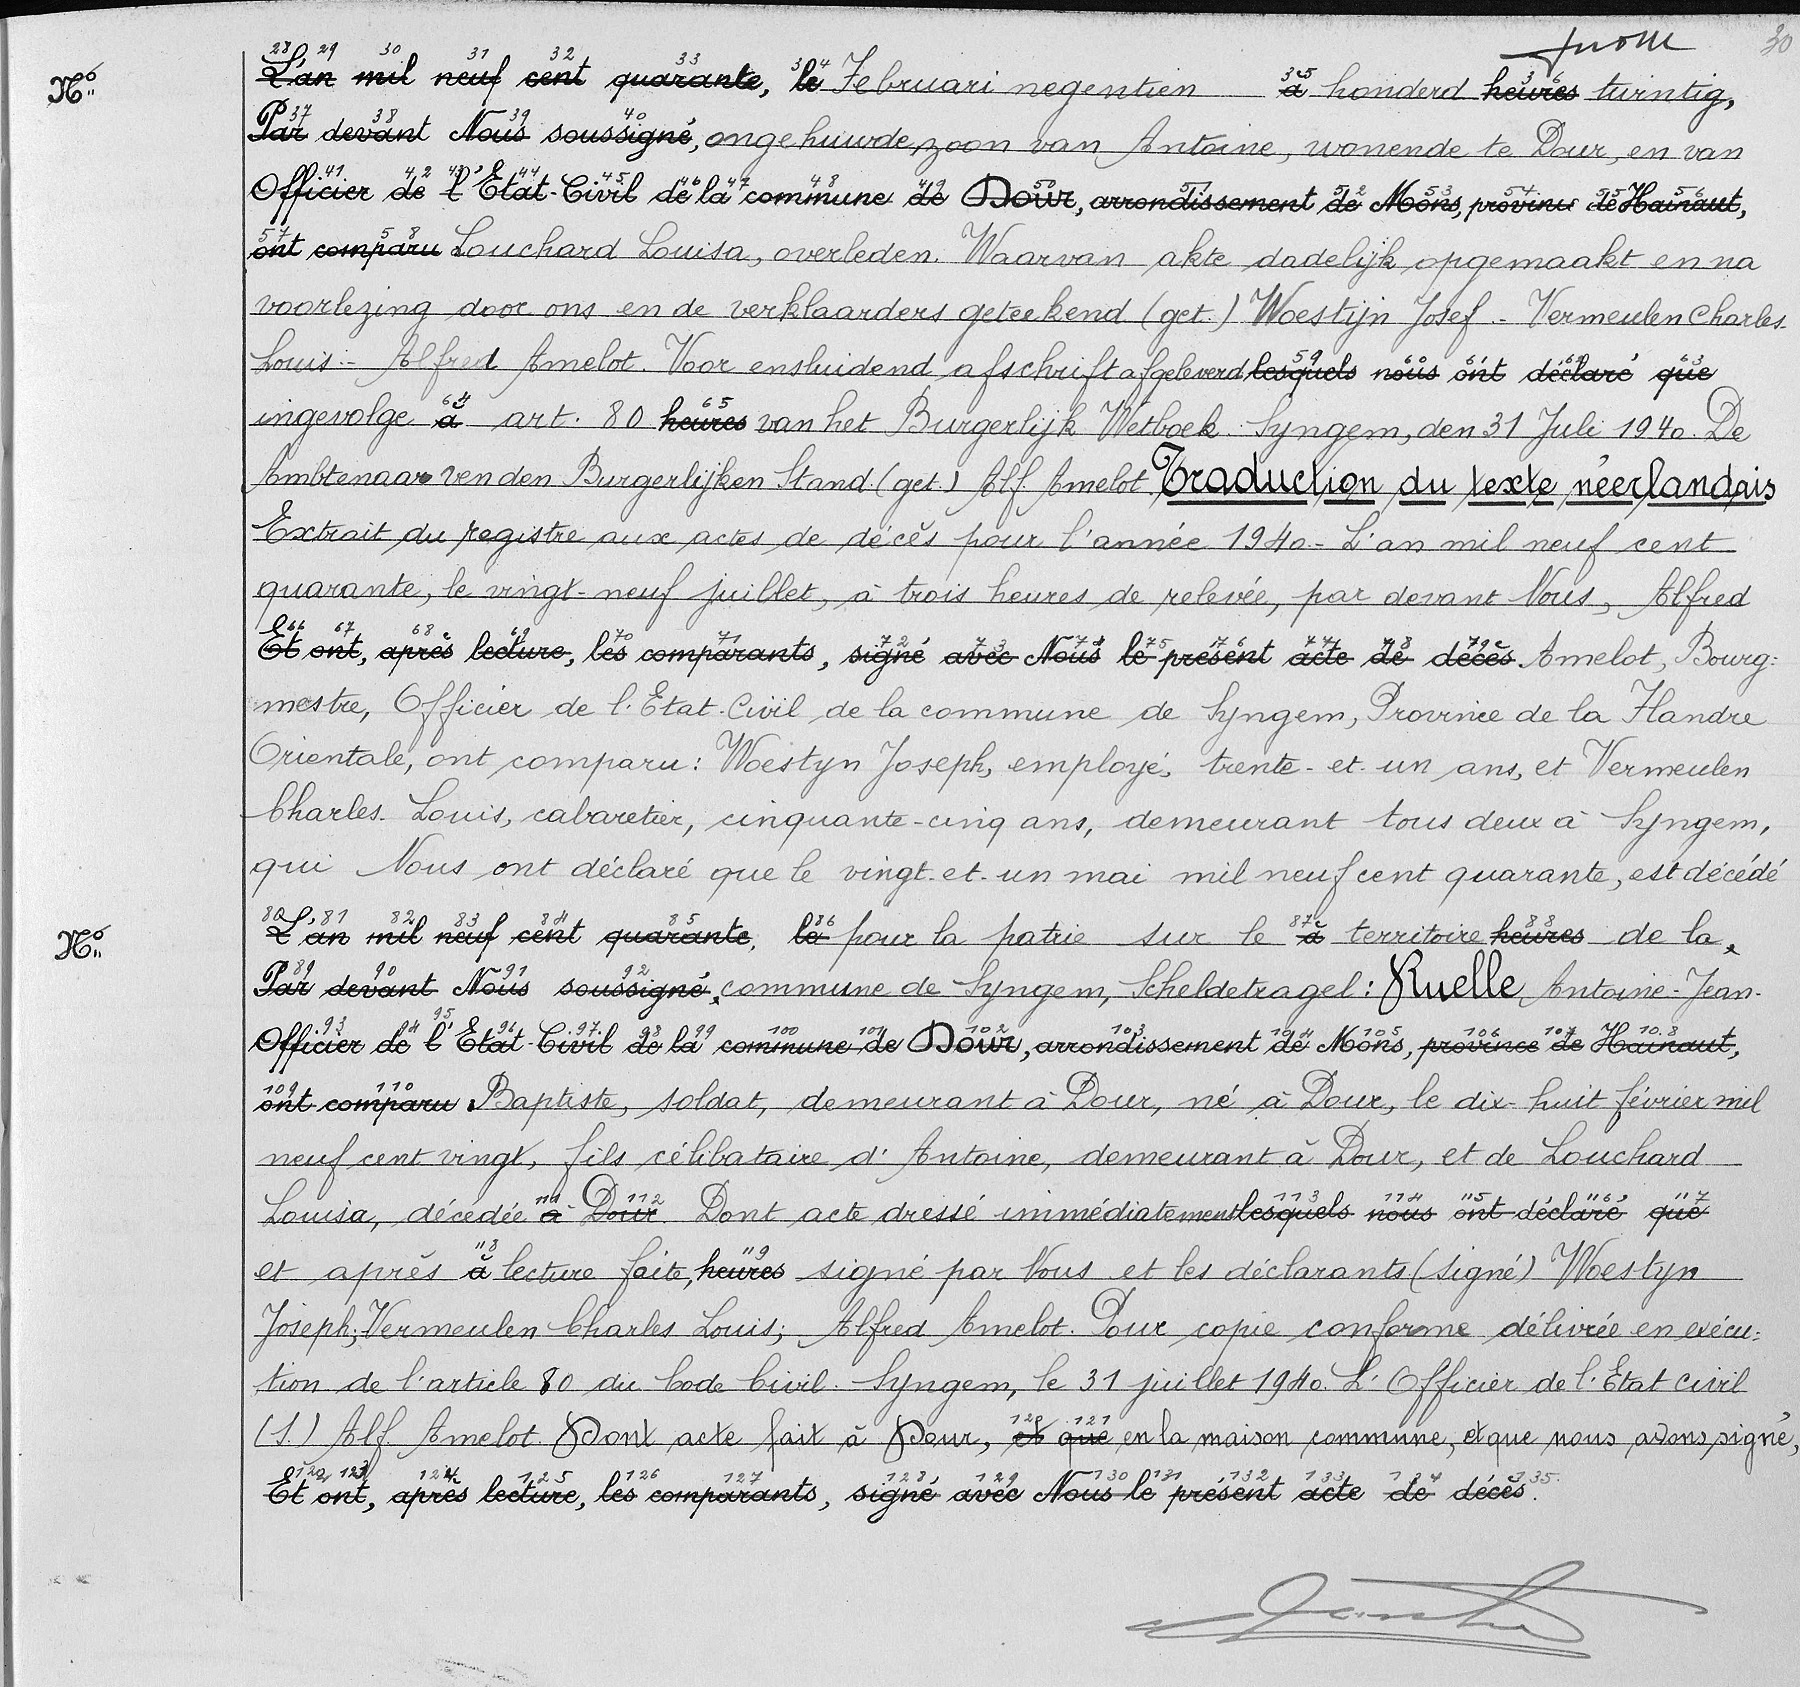 30
Nº L'an mil neuf cent quarante, le Februari negentien à honderd heures twintig,
Par devant Nous soussigné, ongehuwde zoon van Antoine, wonende te Dour, en van
Officier de l'Etat-Civil de la commune de Dour, arrondissement de Mons, province de Hainaut,
ont comparu Louchard Louisa, overleden. Waarvan akte dadelijk opgemaakt en na
voorlezing door ons en de verklaarders geteekend (get.) Woestijn Josef - Vermeulen Charles-
Louis - Alfred Amelot. Voor ensluidend afschrift afgeleverd lesquels nous ont déclaré que
ingevolge à art. 80 heures van het Burgerlijk Wetboek. Syngem, den 31 Juli 1940. De
Ambtenaar van den Burgerlijken Stand. (get.) Alf. Amelot. Traduction du texte néerlandais
Extrait du registre aux actes de décès pour l'année 1940.- L'an mil neuf cent
quarante, le vingt-neuf juillet, à trois heures de relevée, par devant Nous, Alfred
Et ont, après lecture, les comparants, signé avec Nous le présent acte de décès. Amelot, Bourg=
mestre, Officier de l'Etat-Civil de la commune de Syngem, Province de la Flandre
Orientale, ont comparu: Woestyn Joseph, employé, trente-et-un ans, et Vermeulen
Charles-Louis, cabaretier, cinquante-cinq ans, demeurant tous deux à Syngem,
qui Nous ont déclaré que le vingt-et-un mai mil neuf cent quarante, est décédé
Nº L'an mil neuf cent quarante, le pour la patrie sur le à territoire heures de la,
Par devant Nous soussigné, commune de Syngem, Scheldetragel: Ruelle Antoine-Jean-
Officier de l'Etat-Civil de la commune de Dour, arrondissement de Mons, province de Hainaut,
ont comparu Baptiste, soldat, demeurant à Dour, né à Dour, le dix-huit février mil
neuf cent vingt, fils célibataire d'Antoine, demeurant à Dour, et de Louchard
Louisa, décédée à Dour. Dont acte dressé immédiatement lesquels nous ont déclaré que
et après à lecture faite, heures signé par Nous et les déclarants (signé) Woestyn
Joseph; Vermeulen Charles Louis; Alfred Amelot. Pour copie conforme délivrée en exécu=
tion de l'article 80 du Code Civil. Syngem, le 31 juillet 1940. L'Officier de l'Etat Civil
(s.) Alf. Amelot. Dont acte fait à Dour, et que en la maison commune, et que nous avons signé,
Et ont, après lecture, les comparants, signé avec Nous le présent acte de décès.